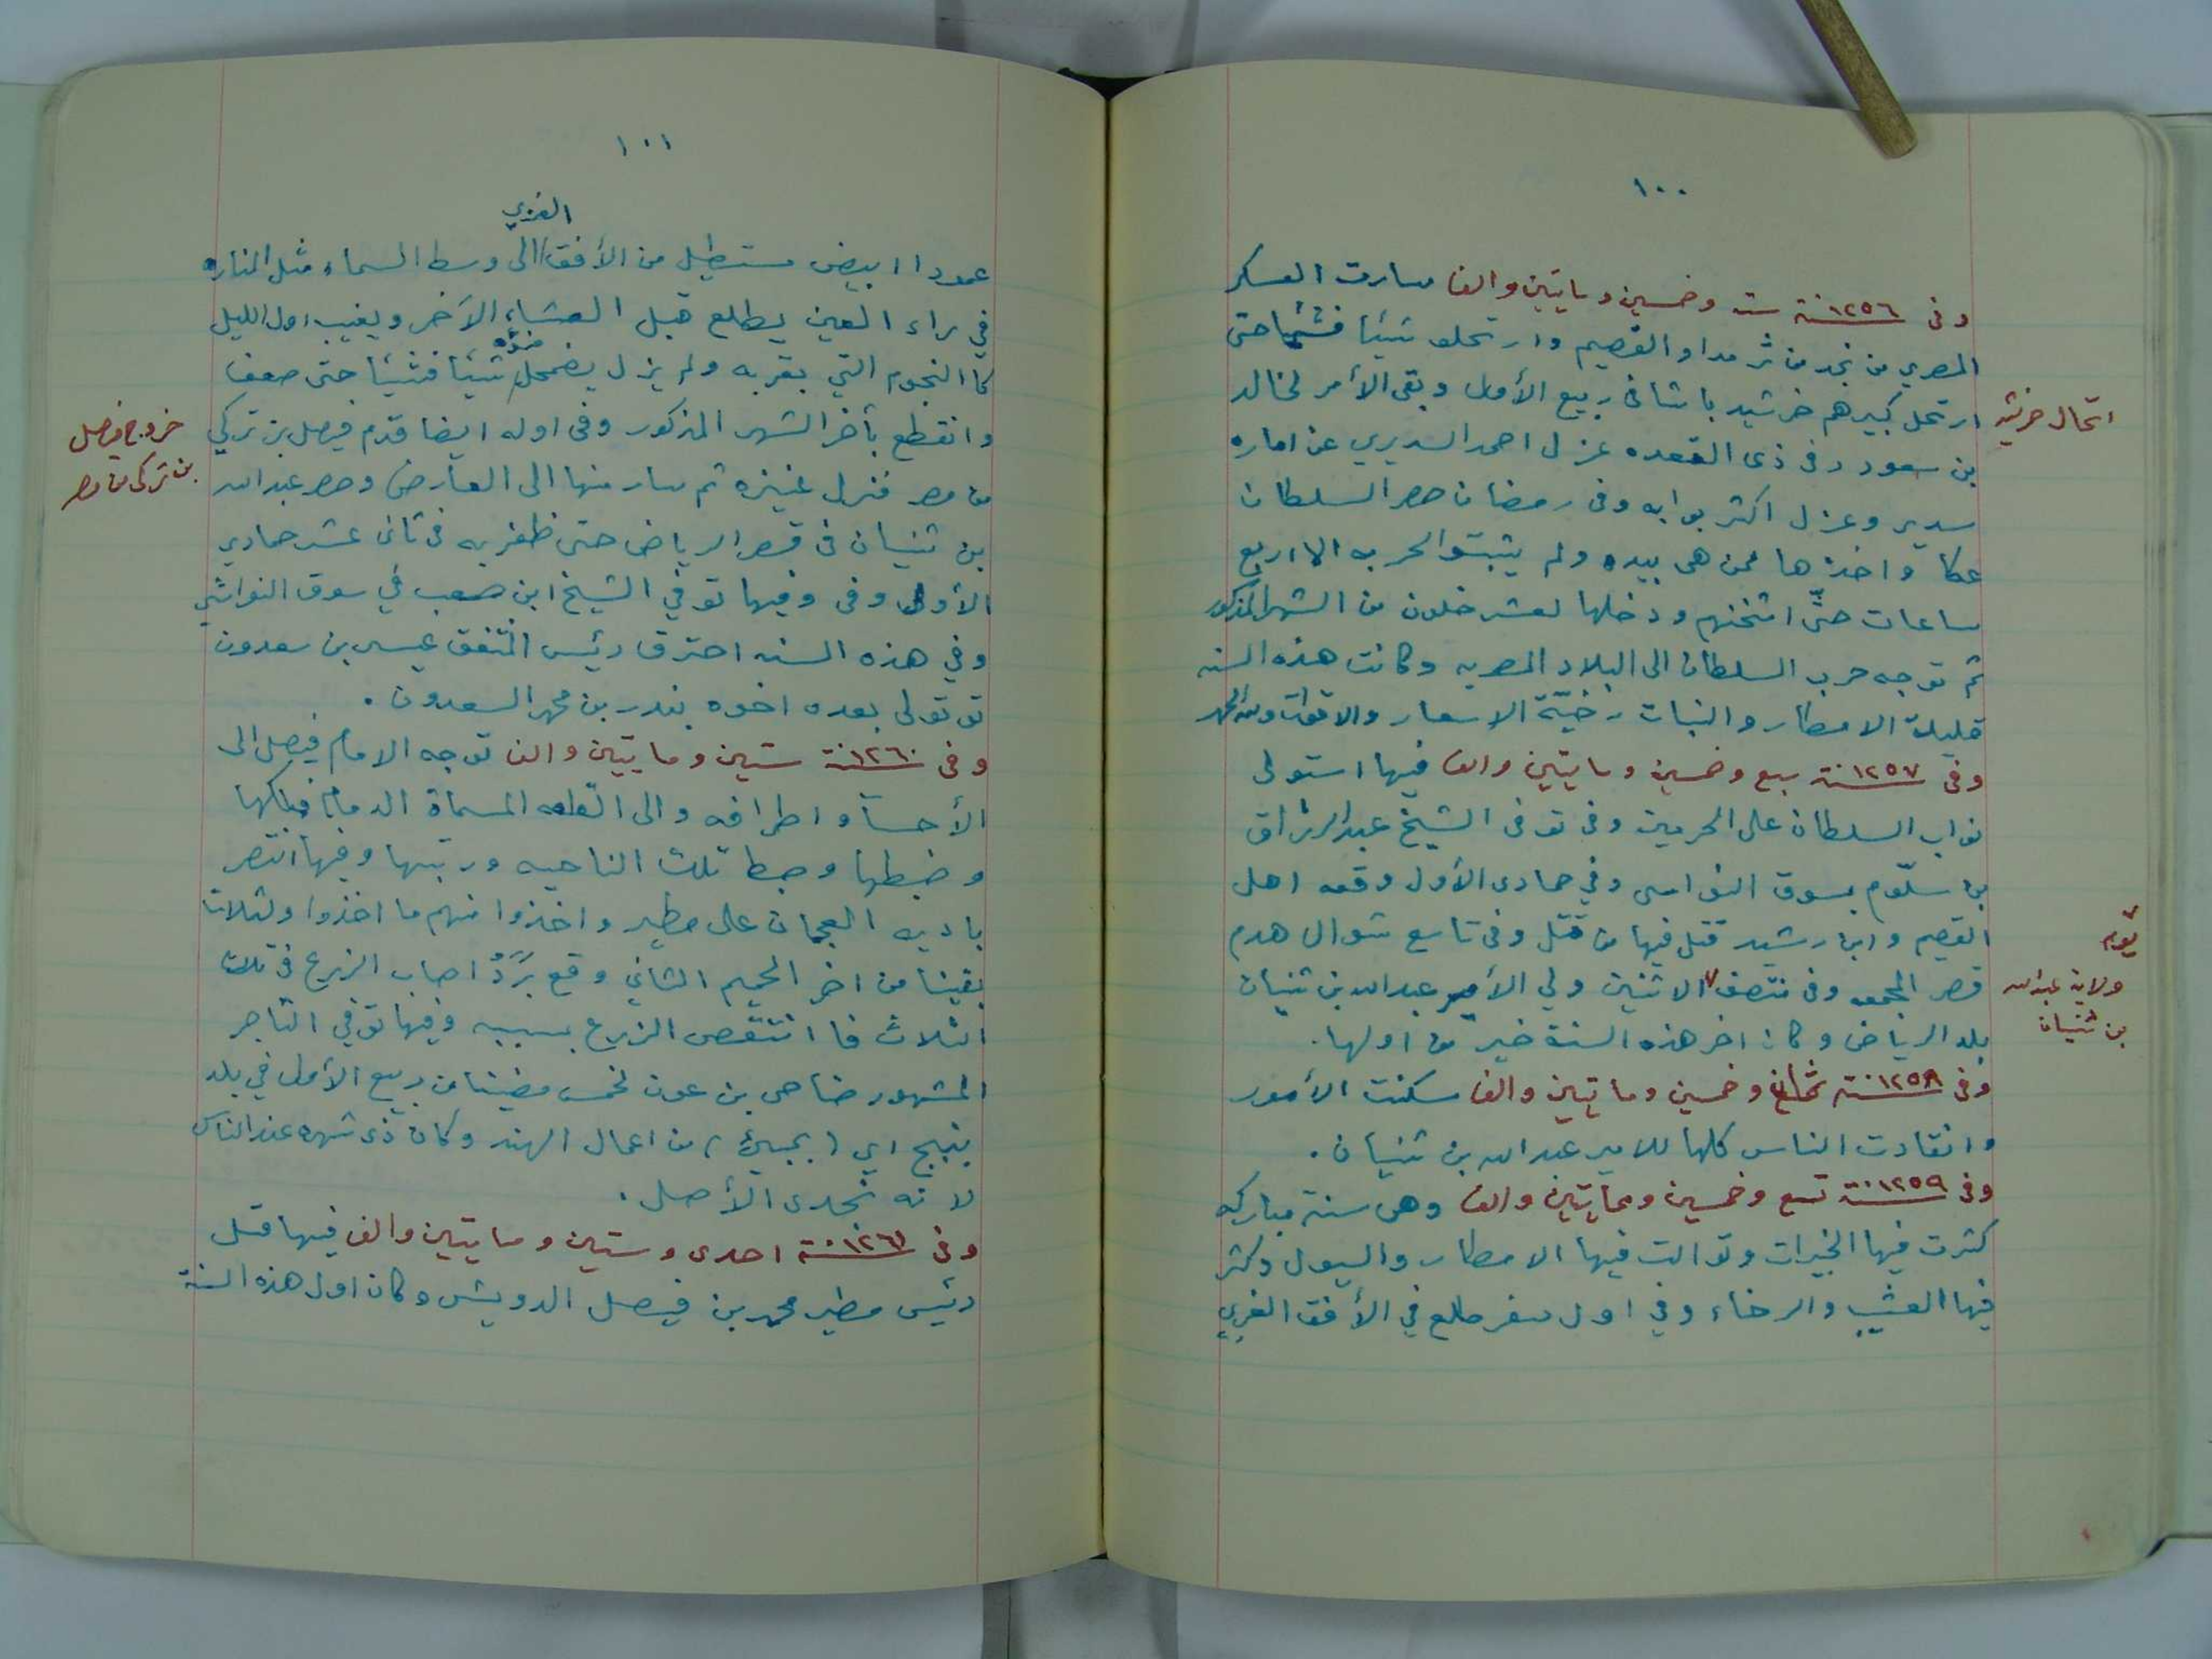 ١٠٠
وفى ١٢٥٦ سنة ست وخمسين وماتين والف سارت العسكر
المصري من نجد من ثرمدا والقصيم وارتحلو شيئا فشيئا حتى
ارتحل كبيرهم خرشيد باشا فى ربيع الأول وبقى الأمر لخالد
بن سعود وفى ذى القعده عزل احمد السديري عن اماره
سدير وعزل اكثر بوابه وفى رمضان حصر السلطان
عكا واخذها ممن هى بيده ولم يثبتوا لحربه الا اربع
ساعات حتَّى اثخنهم ودخلها لعشر خلون من الشهر المذكور
ثم توجه حرب السلطان الى البلاد المصريه وكانت هذه السنه
قليلة الامطار والنبات رخيّة الاسعار والاقوات ولله الحمد
وفى ١٢٥٧ سنة سبع وخمسين وماتين والف فيها استولى
نواب السلطان على الحرمين وفى توفى الشيخ عبدالرزاق
بن سلّوم بسوق النواسى وفي جمادى الأول وقعه اهل
القصيم وابن رشيد قتل فيها من قتل وفى تاسع شوال هدم
قصر المجمعه وفى منتصف الاثنين ولي الأمير عبدالله بن ثنيان
بلد الرياض وكان اخر هذه السنة خير من اولها.
وفى ١٢٥٨ سنة ثمان وخمسين وماتين والف سكنت الأمور
وانقادت الناس كلها للامير عبدالله بن ثنيان.
وفى ١٢٥٩ سنة تسع وخمسين ومايتين والف وهى سنة مباركه
كثرت فيها الخيرات وتوالت فيها الامطار والسيول وكثر
فيها العشب والرخاء وفي اول صفر طلع في الأفق الغربي
ولاية عبدالله
بن ثنيان
١٠١
عمودا ابيض مستطيل من الأفق الغربي الى وسط السماء مثل المناره
في راء العين يطلع قبل العشاء الآخر ويغيب اول الليل
كا النجوم التي بقربه ولم يزل يضمحل ضوّه شيئا فشيئا حتى ضعف
وانقطع بآخر الشهر المذكور وفى اوله ايضا قدم فيصل بن تركي
من مصر فنزل عنيزه ثم سار منها الى العارض وحصر عبدالله
بن ثنيان فى قصر الرياض حتى ظفر به فى ثانى عشر جمادى
الأول وفى وفيها توفي الشيخ ابن صعب في سوق النواشي
وفي هذه السنه احترق رئيس المنتفق عيسى بن سعدون
تو تولى بعده اخوه بندر بن محمد السعدون.
وفى ١٢٦٠ سنة ستين ومايتين والف توجه الامام فيصل الى
الأحسآ واطرافه والى القلعه المسماة الدمام فملكها
وضبطها وضبط تلك الناحيه ورتبها وفيها انتصر
باديه العجمان على مطير واخذوا منهم ما اخذوا ولثلاث
بقينا من اخر الحميم الثاني وقع بَرَدٌ اصاب الزرع فى تلك
الثلاث فا انتقص الزرع بسببه وفيها توفي التاجر
المشهور ضاحى بن عون لخمس مضينا من ربيع الأول في بلد
بنبج اي (بمبيئ) من اعمال الهند وكان ذى شهره عند الناس
لانه نجدى الأصل.
وفى ١٢٦١ سنة احدى وستين ومايتين والف فيها قتل
رئيس مطير محمد بن فيصل الدويش وكان اول هذه السنة
خروج فيصل
بن تركى من مصر